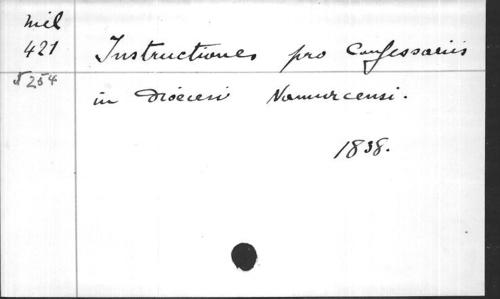 Mil
421
Instructiones pro Confessariis
254
in Dioecesi Namurcensi.
1838.